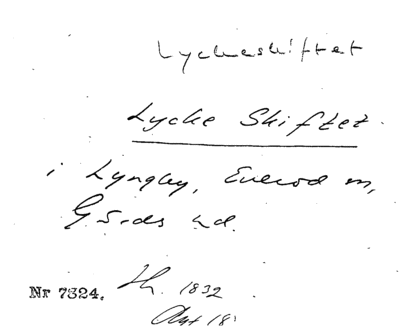 Lyckeskiftet
Lycke Skiftet
i Lyngby, Everöd m,
Gärds hd.
Nr 7324. Th. 1832
Aut 18